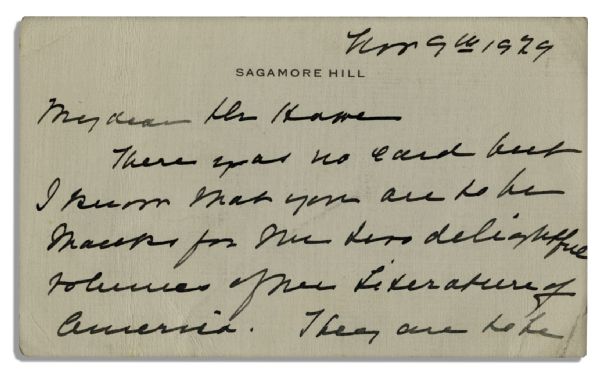 Nov 9th 1929
SAGAMORE HILL
My dear Mr Howe
There was no card but
I know that you are to be
thanks for the two delightful
volumes of the Literature of
America. They are to be